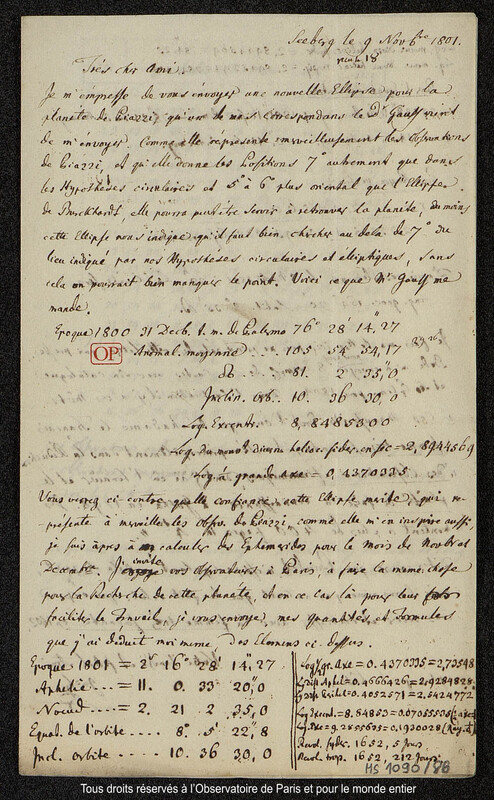 Seeberg le 9 Novbre 1801.
Très cher Ami
Je m'empresse de vous envoyer une nouvelle Ellipse pour la
planete de Piazzi, qu'un de mes correspondans le Dr Gauss vient
de m'envoyer. Comme elle represente merveilleusement les Observations
de Piazzi, et qu'elle donne les Positions 7° autrement que dans
les Hypotheses circulaires et 5° à 6° plus oriental que l'Ellipse
de Burckhardt, elle pourra peut être servir à retrouver la planete, du moins
cette Ellipse nous indique qu'il faut bien chercher au dela de 7° du
lieu indiqué par nos Hypotheses circulaires et elliptiques, sans
cela on pourrait bien manquer le point. Voici ce que Mr Gauss me
mande.
Epoque 1800 31 Decb. t. m. de Palermo 76° 28' 14",27
OP Anomal. moyenne .... 105 54 54,17
☊ .... 81. 2 35,0
Inclin. orb... 10. 36 30,0
Log. Excentr. 8,8485300
Log. du mouvt. diurn helioc. sider. en sec = 2,8944569
Log. ½ grande Axe = 0,4370335
Vous verrez ci contre quelle confiance cette Ellipse merite, qui re-
-présente à merveille les observ. de Piazzi, comme elle m'en inspire aussi,
je suis après à calculer des Ephemerides pour le Mois de Novbr et
Decembre. J'invite vos Observateurs à Paris, à faire la meme chose
pour la Recherche de cette planete, et en ce cas là pour leur
faciliter le Travail, je vous envoye, mes quantités et Formules
que j'ai deduit moi meme des Elemens ci-dessus.
Epoque 1801 = 2s 16° 28' 14",27
Aphelie ... = 11. 0. 33 20",0
Noeud ... = 2. 21 2 35,0
Equat. de l'orbite .... 8°. 5' 22",8
Incl. orbite .... 10. 36 30,0
Log ½ gr. Axe = 0.4370335 = 2,73548
= 0.4666426 = 2,9284828
= 0.4052571 = 2.5424772
Log Excent. = 8.84853 = 0.0705535
= 9.2855675 = 0.1930028
Revol. syder. 1652, 5 Jours
Revol. trop. 1652, 212 Jours
MS 1090/88
Tous droits réservés à l'Observatoire de Paris et pour le monde entier